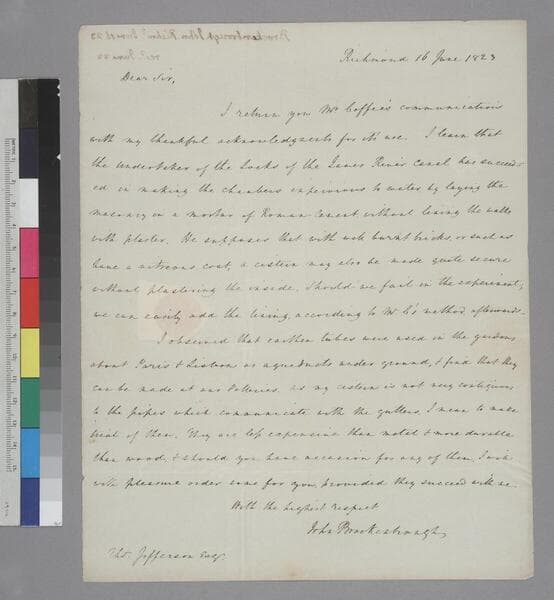 Richmond 16 June 1823
Dear Sir,
I return you Mr Coffee's communication
with my thankful acknowledgments for its use. I learn that
the undertaker of the Locks of the James River Canal has succeed-
ed in making the chambers impervious to water by laying the
masonry in a mortar of Roman cement without lining the walls
with plaster. He supposes that with well burnt bricks, or such as
have a vitreous coat, a cistern may also be made quite secure
without plastering the inside. Should we fail in the experiment,
we can easily add the lining, according to Mr C's method, afterwards.
I observed that earthen tubes were used in the gardens
about Paris & Lisbon as aqueducts under ground, & find that they
can be made at our Potteries. As my cistern is not very contiguous
to the pipes which communicate with the gutters, I mean to make
trial of them. They are less expensive than metal & more durable
than wood, & should you have occasion for any of them, I will
with pleasure order some for you, provided they succeed with me.
With the highest respect
John Brockenbrough
Thos. Jefferson Esqr.